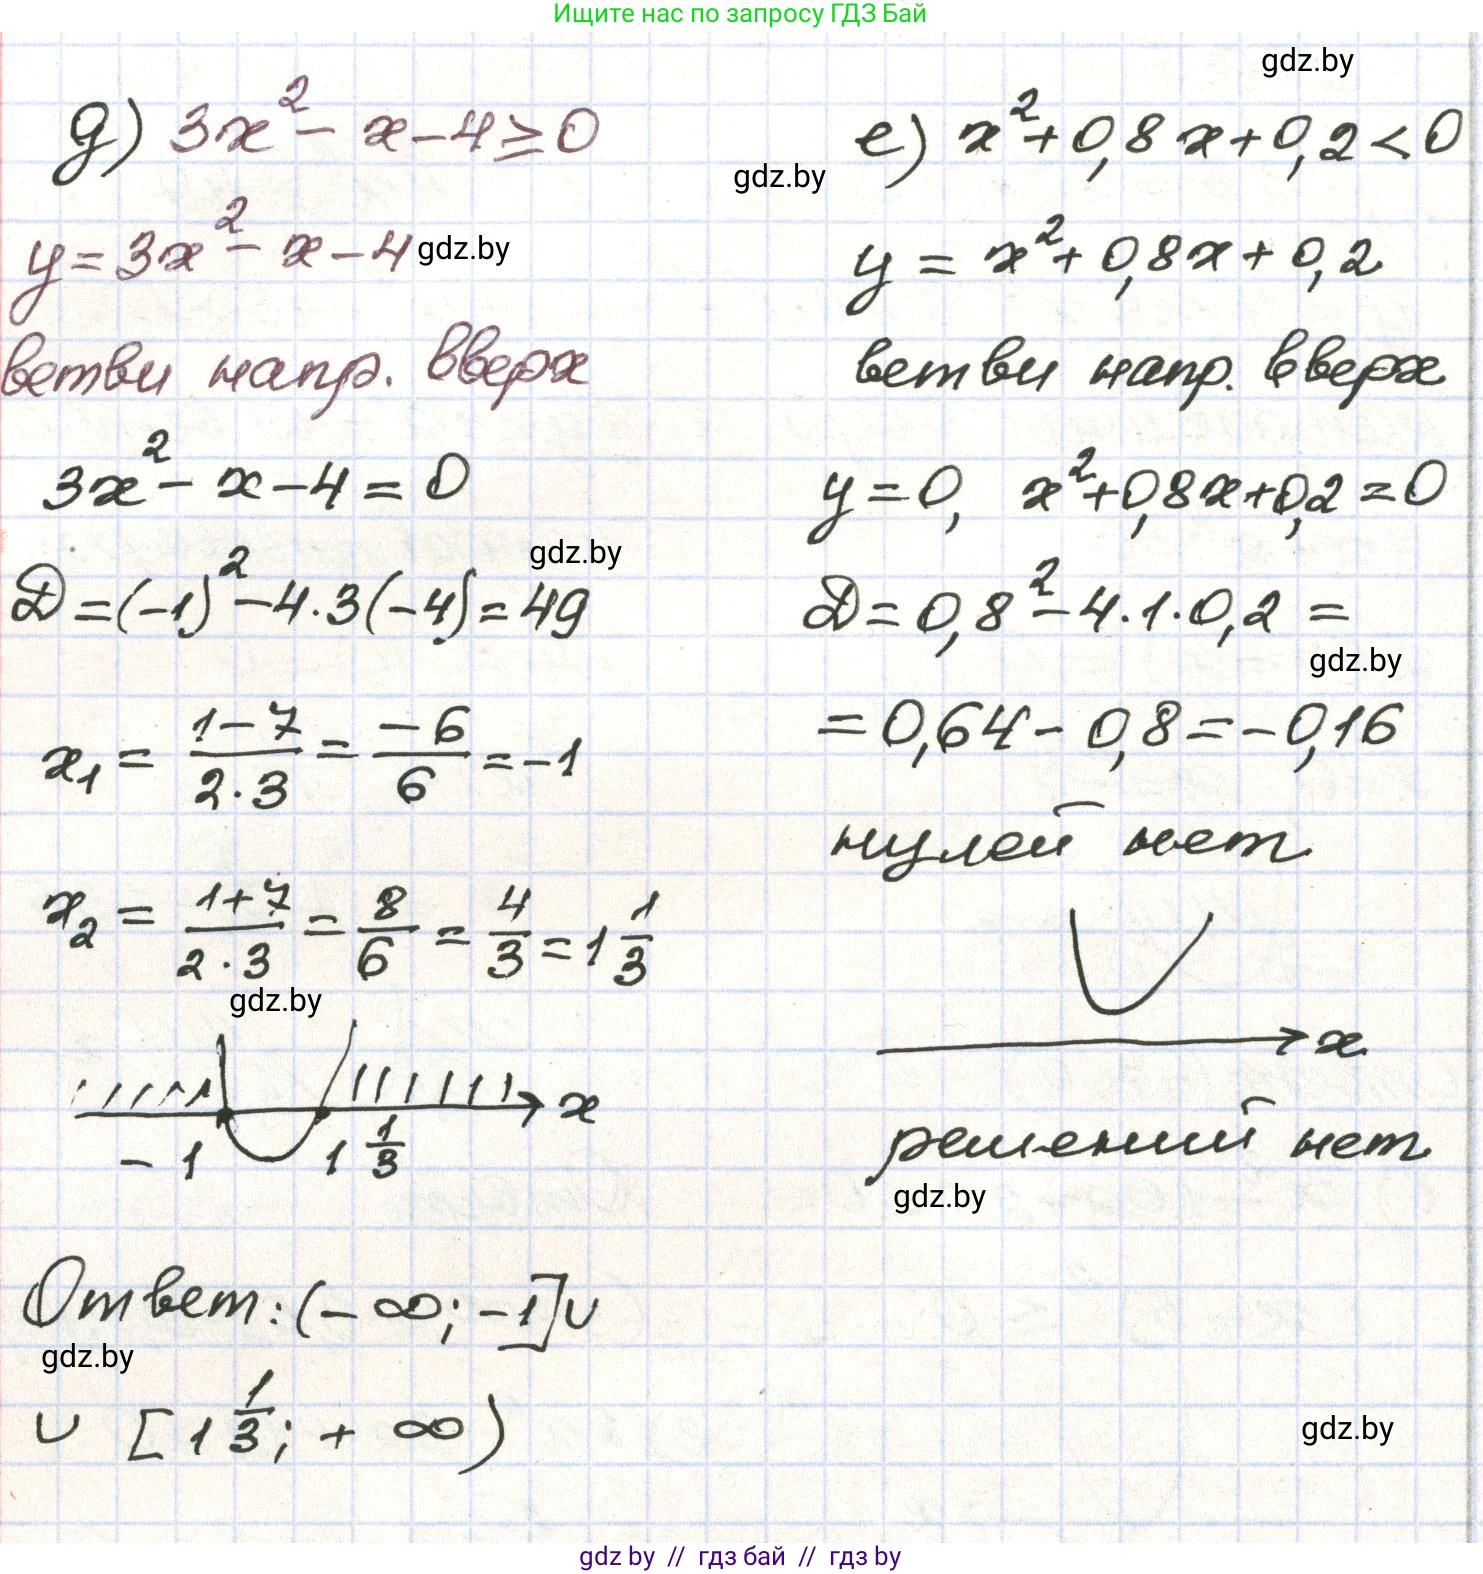 Ищите нас по запросу ГДЗ Бай
gdz.by
д) 3x² - x - 4 ≥ 0
y = 3x² - x - 4 gdz.by
ветви напр. вверх
3x² - x - 4 = 0
gdz.by
D = (-1)² - 4·3(-4) = 49
x₁ = (1-7)/(2·3) = -6/6 = -1
x₂ = (1+7)/(2·3) = 8/6 = 4/3 = 1 1/3
gdz.by
x
-1 1 1/3
Ответ: (-∞; -1] ∪
gdz.by
∪ [1 1/3; +∞)
е) x² + 0,8x + 0,2 < 0
gdz.by
y = x² + 0,8x + 0,2
ветви напр. вверх
y = 0, x² + 0,8x + 0,2 = 0
D = 0,8² - 4·1·0,2 =
gdz.by
= 0,64 - 0,8 = -0,16
нулей нет
x
решений нет
gdz.by
gdz.by
gdz by // гдз бай // гдз by